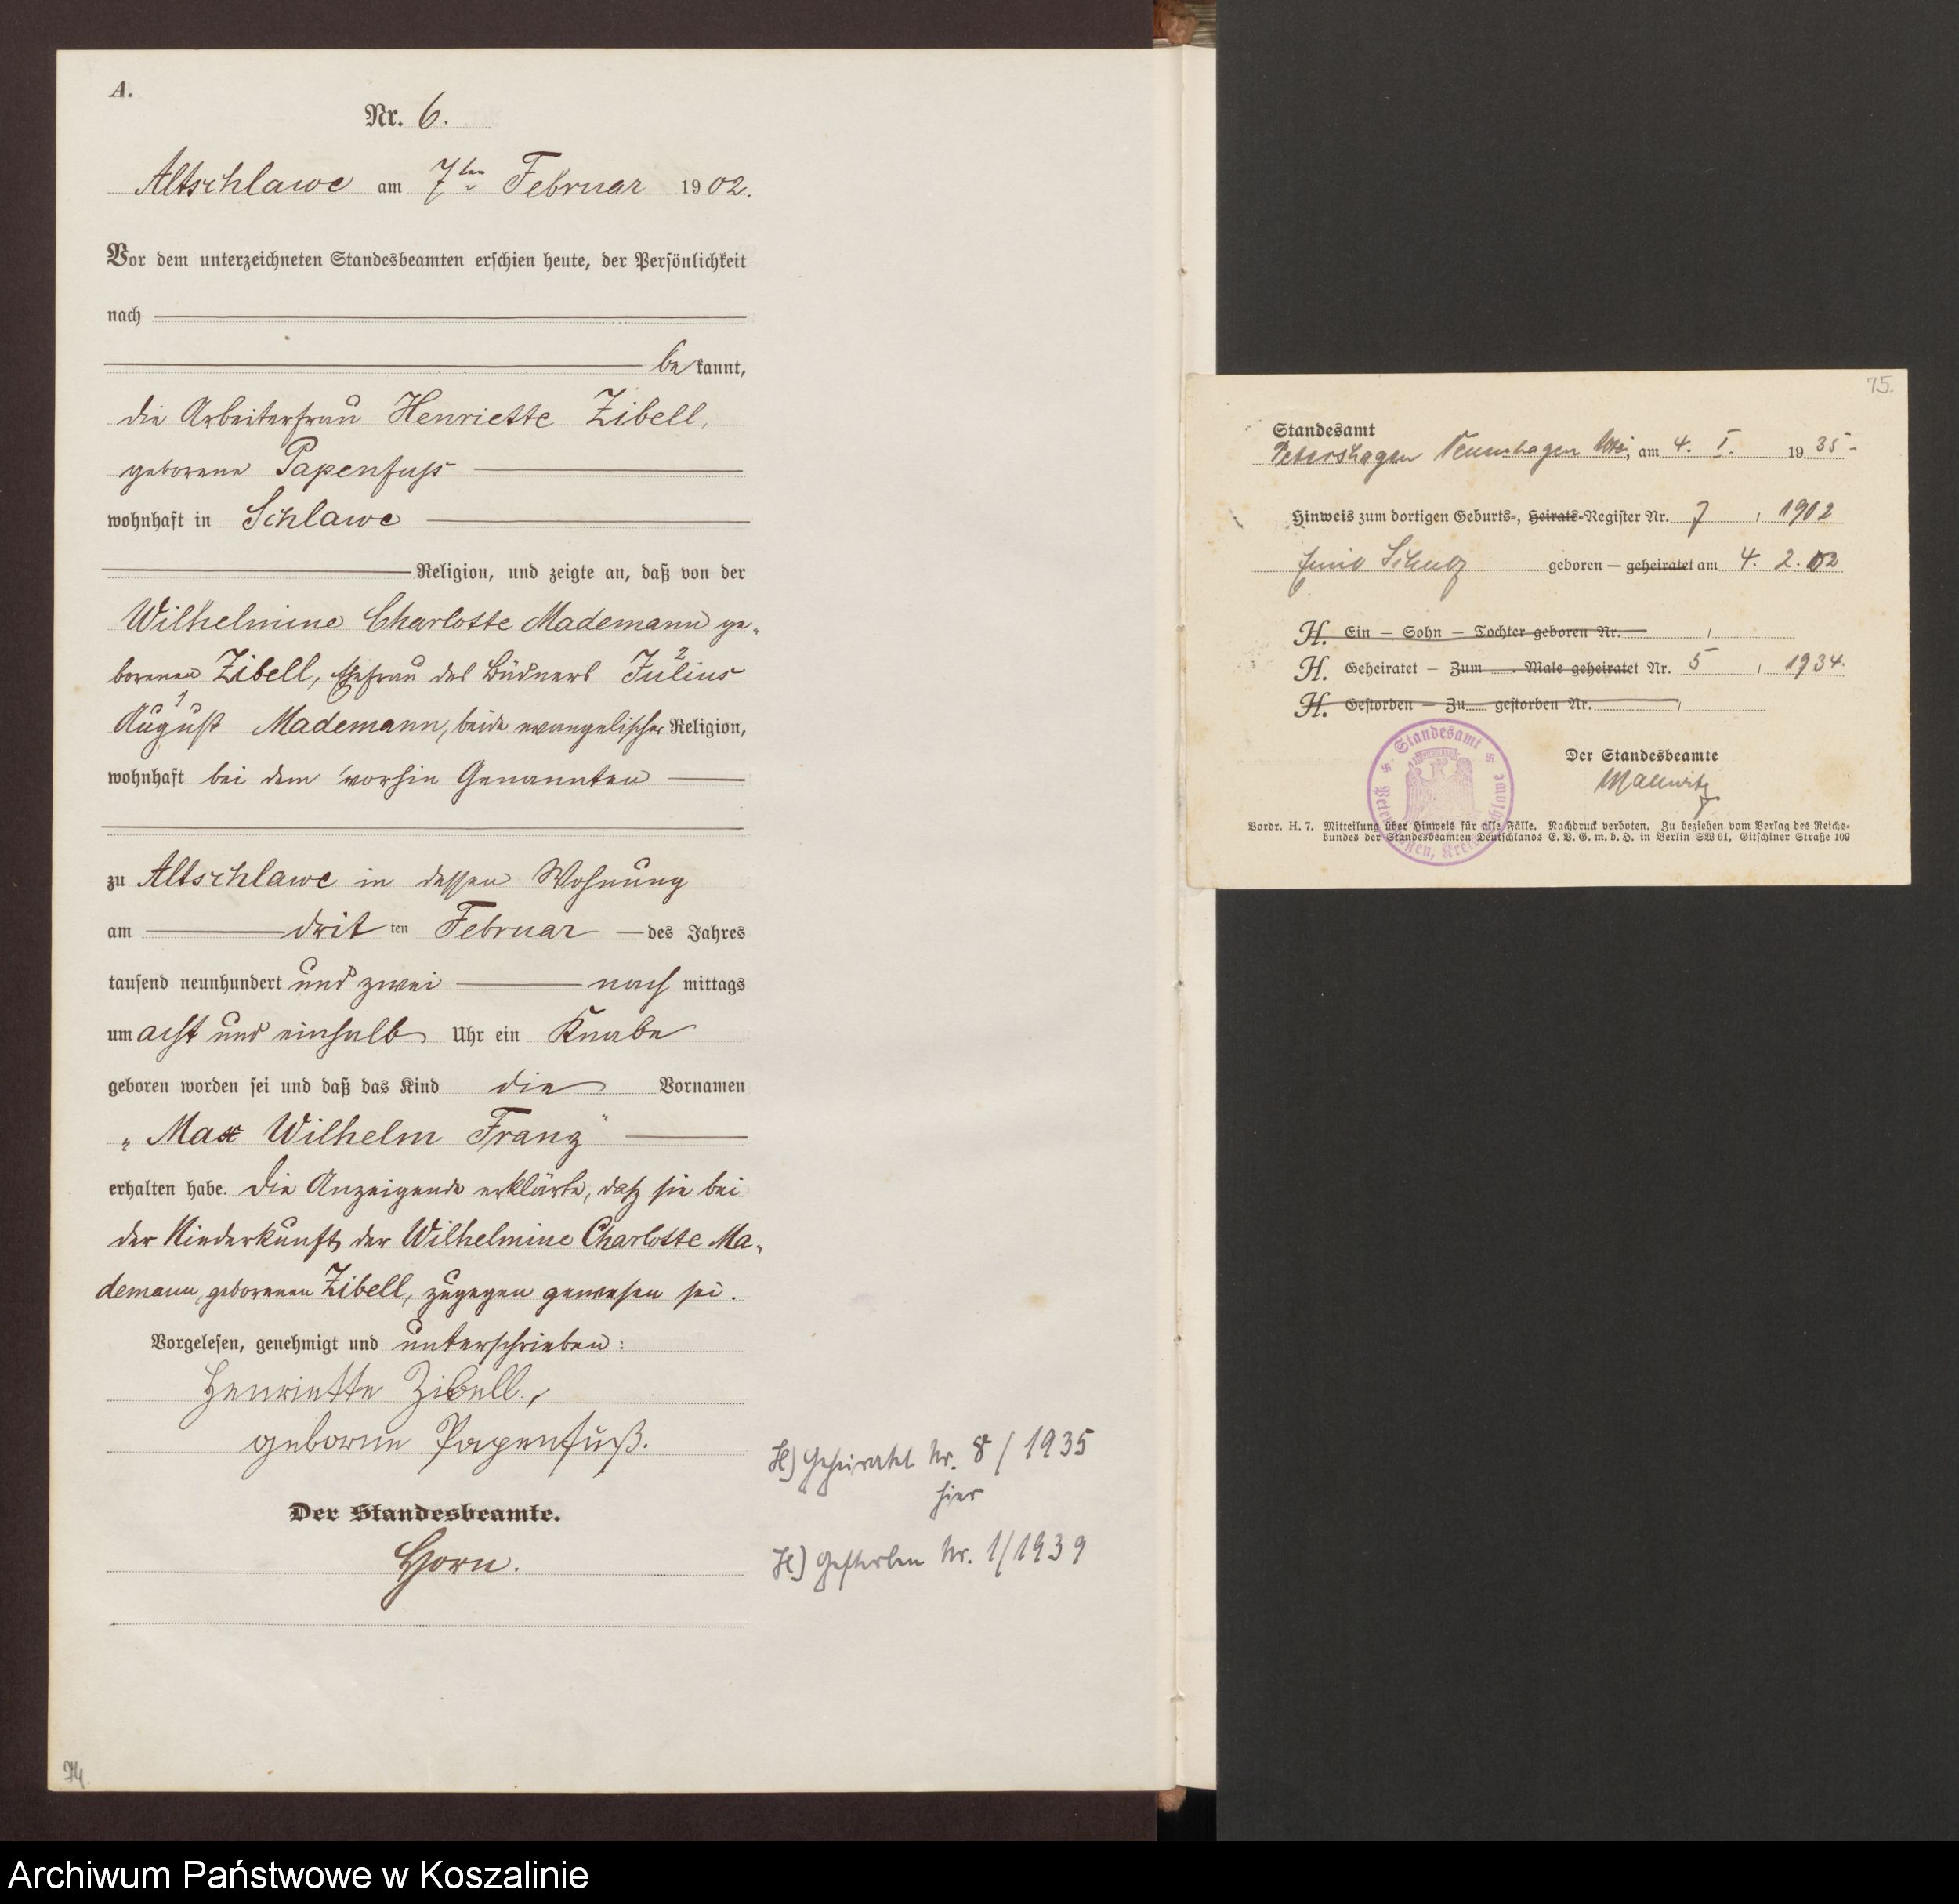 A.
Nr. 6.
Altschlawe am 7ten Februar 1902.
Vor dem unterzeichneten Standesbeamten erschien heute, der Persönlichkeit
nach
be kannt,
die Arbeiterfrau Henriette Zibell,
geborene Papenfuss
wohnhaft in Schlawe
Religion, und zeigte an, daß von der
Wilhelmine Charlotte Mademann ge-
borenen Zibell, Ehefrau des Büdners Julius 2
August 1 Mademann, beide evangelischer Religion,
wohnhaft bei dem vorhin Genannten
zu Altschlawe in dessen Wohnung
am drit ten Februar des Jahres
tausend neunhundert und zwei nach mittags
um acht und einhalb Uhr ein Knabe
geboren worden sei und daß das Kind die Vornamen
„Max Wilhelm Franz"
erhalten habe. Die Anzeigende erklärte, daß sie bei
der Niederkunft der Wilhelmine Charlotte Ma-
demann, geborenen Zibell, zugegen gewesen sei.
Vorgelesen, genehmigt und unterschrieben:
Henriette Zibell,
geborne Papenfuß.
Der Standesbeamte.
Horn.
H) Geheiratet Nr. 8/1935
hier
H) Gestorben Nr. 1/1939
74
75.
Standesamt
Petershagen am 4. I. 1935-
Hinweis zum dortigen Geburts-, Heirats-Register Nr. 7, 1902
Schulz geboren — geheiratet am 4. 2. 02
H. Ein — Sohn — Tochter geboren Nr. ,
H. Geheiratet — Zum . Male geheiratet Nr. 5, 1934.
H. Gestorben — Zu gestorben Nr. ,
Der Standesbeamte
Mallwitz
Standesamt
Vordr. H. 7. Mitteilung über Hinweis für alle Fälle. Nachdruck verboten. Zu beziehen vom Verlag des Reichs-
bundes der Standesbeamten Deutschlands E. V. G. m. b. H. in Berlin SW 61, Gitschiner Straße 109
Archiwum Państwowe w Koszalinie